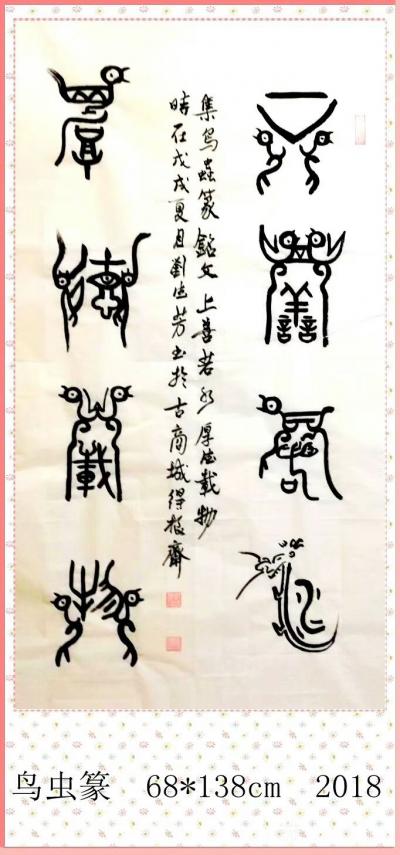 上善若水
厚德載物
集鸟蟲篆銘文上善若水厚德載物
時在戊戌夏月劉芳书於古商城得齋
鸟虫篆 68*138cm 2018